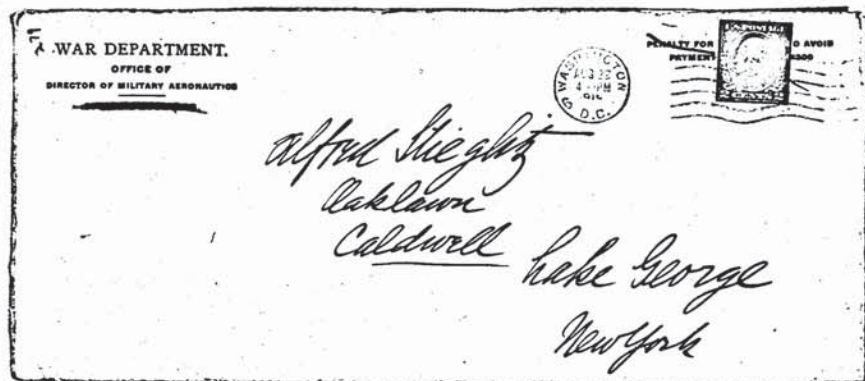 WAR DEPARTMENT.
OFFICE OF
DIRECTOR OF MILITARY AERONAUTICS
WASHINGTON
D.C.
PENALTY FOR
O AVOID
PAYMENT
$300
Alfred Stieglitz
Oaklawn
Caldwell
Lake George
New York